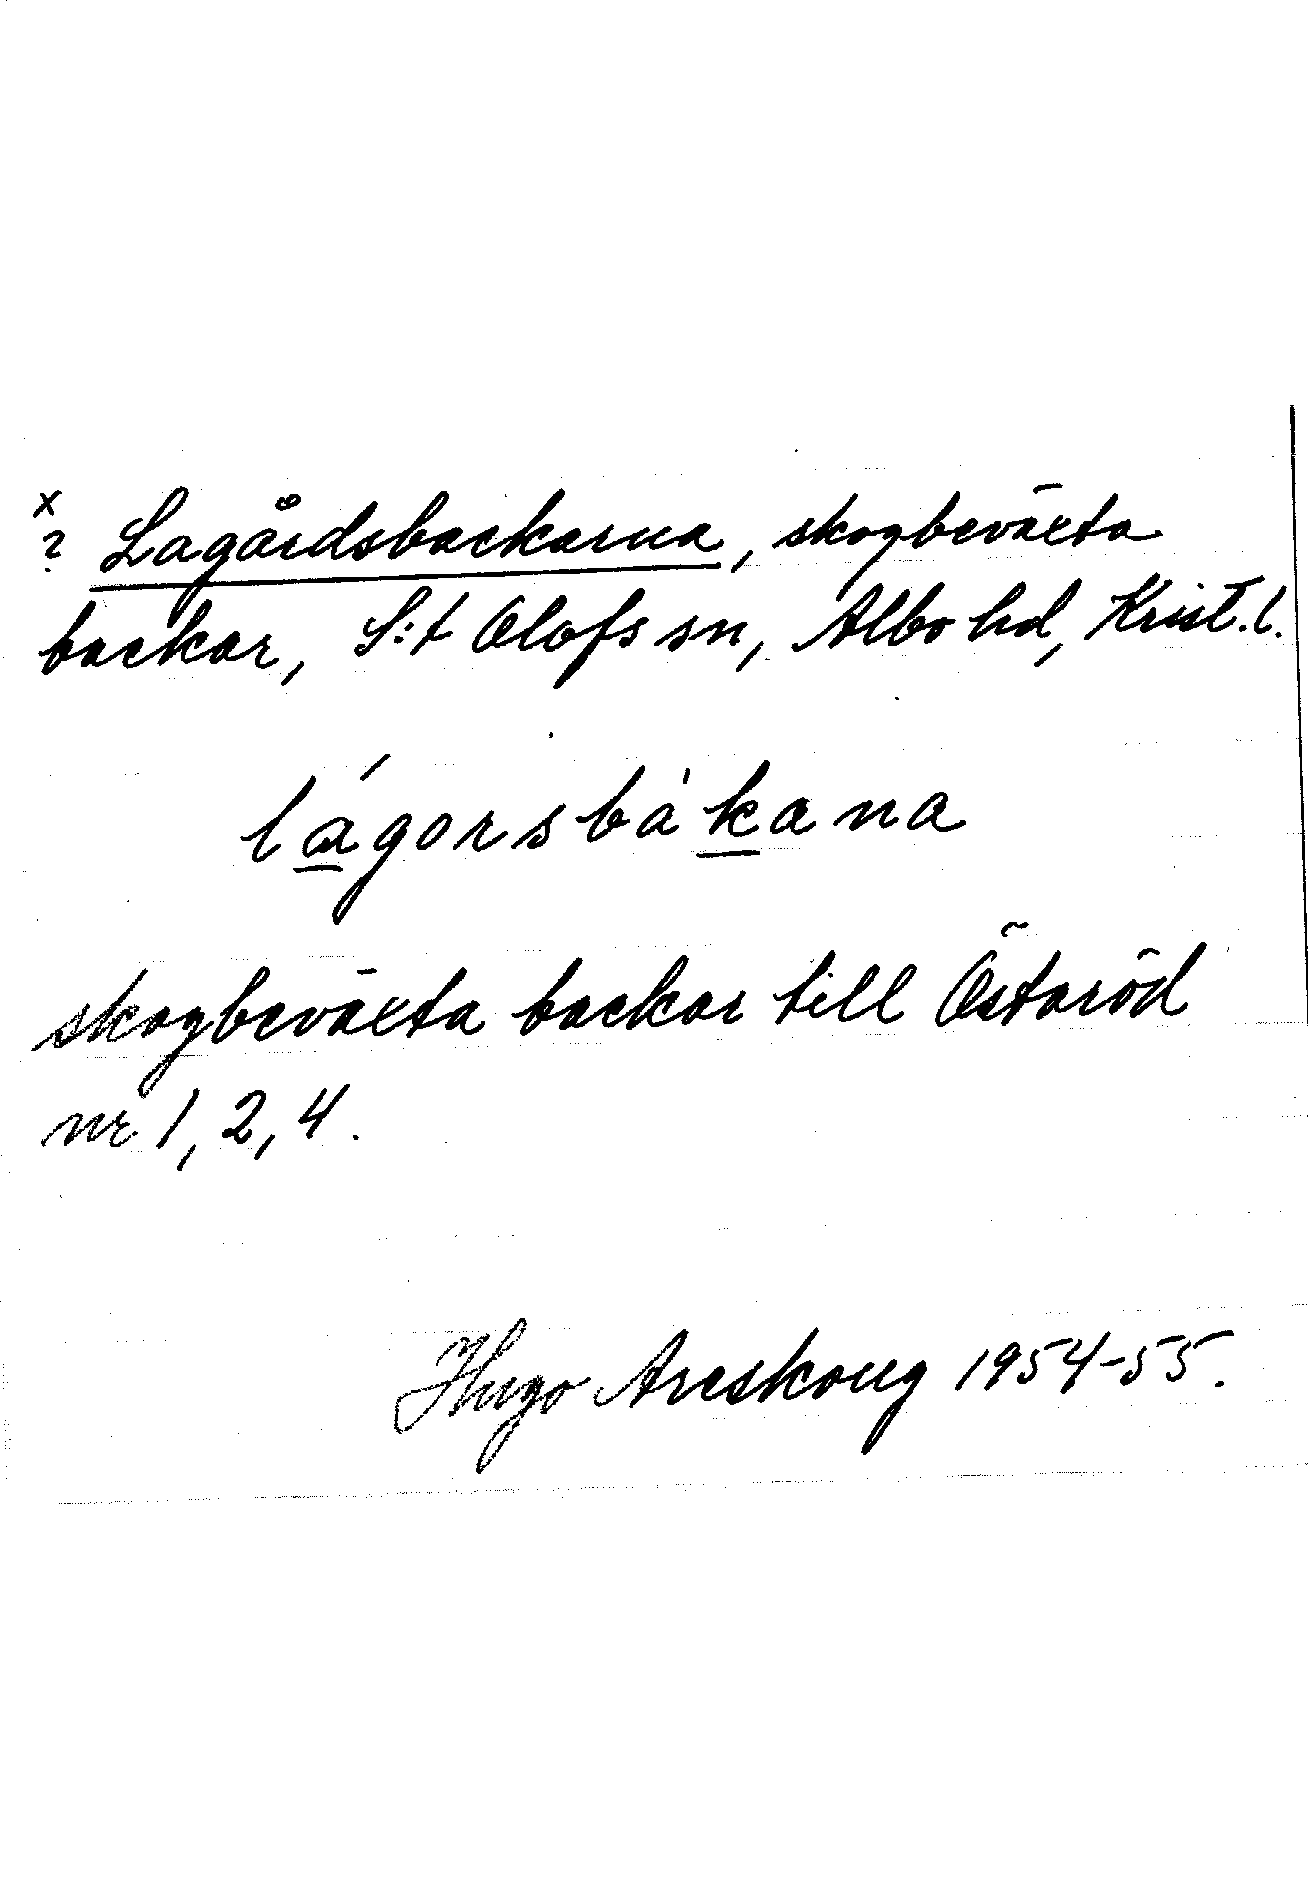 x
? Lagårdsbackarna, skogbeväxta
backar, S:t Olofs sn, Albo hd, Krist. l.
lágorsbàkana
skogbeväxta backar till Östaröd
nr 1, 2, 4.
Hugo Areskoug 1954-55.